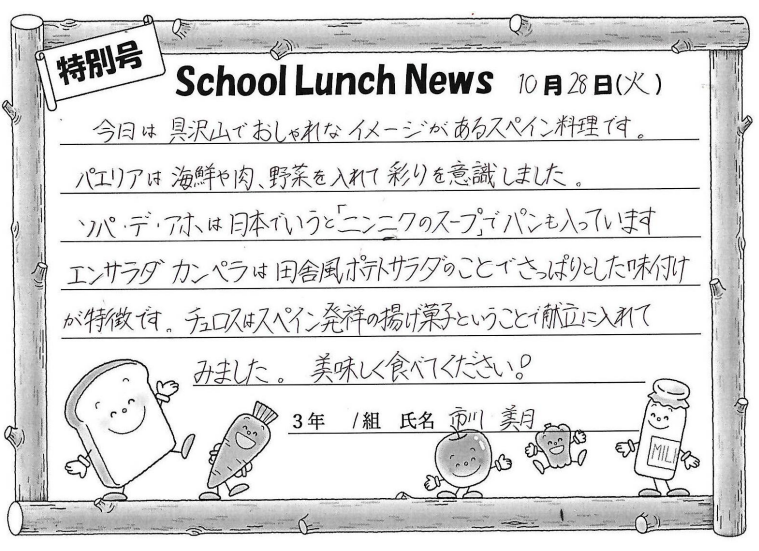 特別号
School Lunch News 10月28日(火)
今日は具沢山でおしゃれなイメージがあるスペイン料理です。
パエリアは海鮮や肉、野菜を入れて彩りを意識しました。
ソパ・デ・アホは日本でいうと「ニンニクのスープ」でパンも入っています
エンサラダ カンペラは田舎風ポテトサラダのことでさっぱりとした味付け
が特徴です。チュロスはスペイン発祥の揚げ菓子ということで献立に入れて
みました。美味しく食べてください!
3年 1組 氏名 市川 美月
MILK